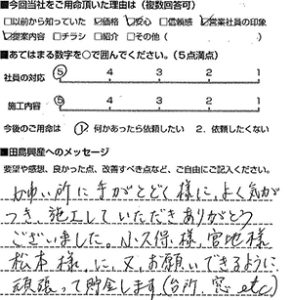 ■今回当社をご用命頂いた理由は（複数回答可）
□以前から知っていた ☑価格 ☑安心 □信頼感 ☑営業社員の印象
☑提案内容 □チラシ □紹介 □その他（　　　）
■あてはまる数字を○で囲んでください。（５点満点）
社員の対応 5 4 3 2 1
施工内容 5 4 3 2 1
今後のご用命は 1．何かあったら依頼したい 2．依頼したくない
■田島興産へのメッセージ
要望や感想、良かった点、改善すべき点など、ご自由にご記入ください。
かゆい所に手がとどく様に、よく気が
つき、施工していただきありがとう
ございました。小久得様、宮地様
松本様、に、又、お願いできるように
頑張って貯金します（台所、窓 etc）